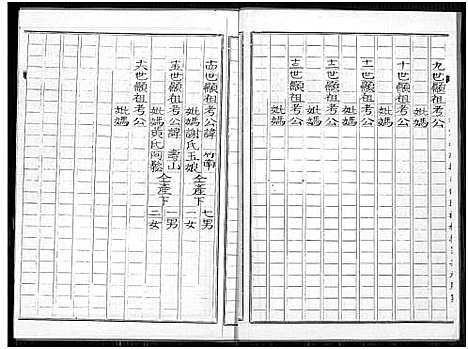 九世顯祖考公
妣媽
十世顯祖考公
妣媽
十一世顯祖考公
妣媽
十二世顯祖考公
妣媽
十三世顯祖考公
妣媽
十四世顯祖考公諱 竹
妣媽謝氏玉娘 仝產下 七男 一女
十五世顯祖考公諱 壽山
妣媽黃氏阿 仝產下 一男 二女
十六世顯祖考公
妣媽